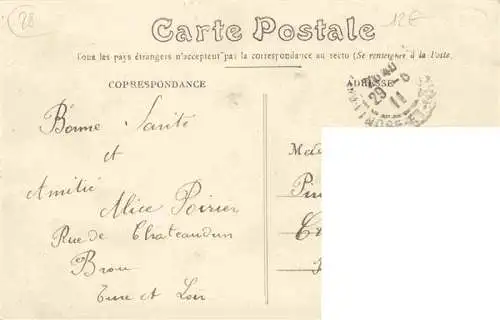 28
12€
Carte Postale
Tous les pays étrangers n'acceptent pas la correspondance au recto (Se renseigner à la Poste.
CORRESPONDANCE
ADRESSE
29 - 6
11
Bonne Santé
et
Amitié
Alice Poirier
Rue de Chateaudun
Brou
Eure et Loir